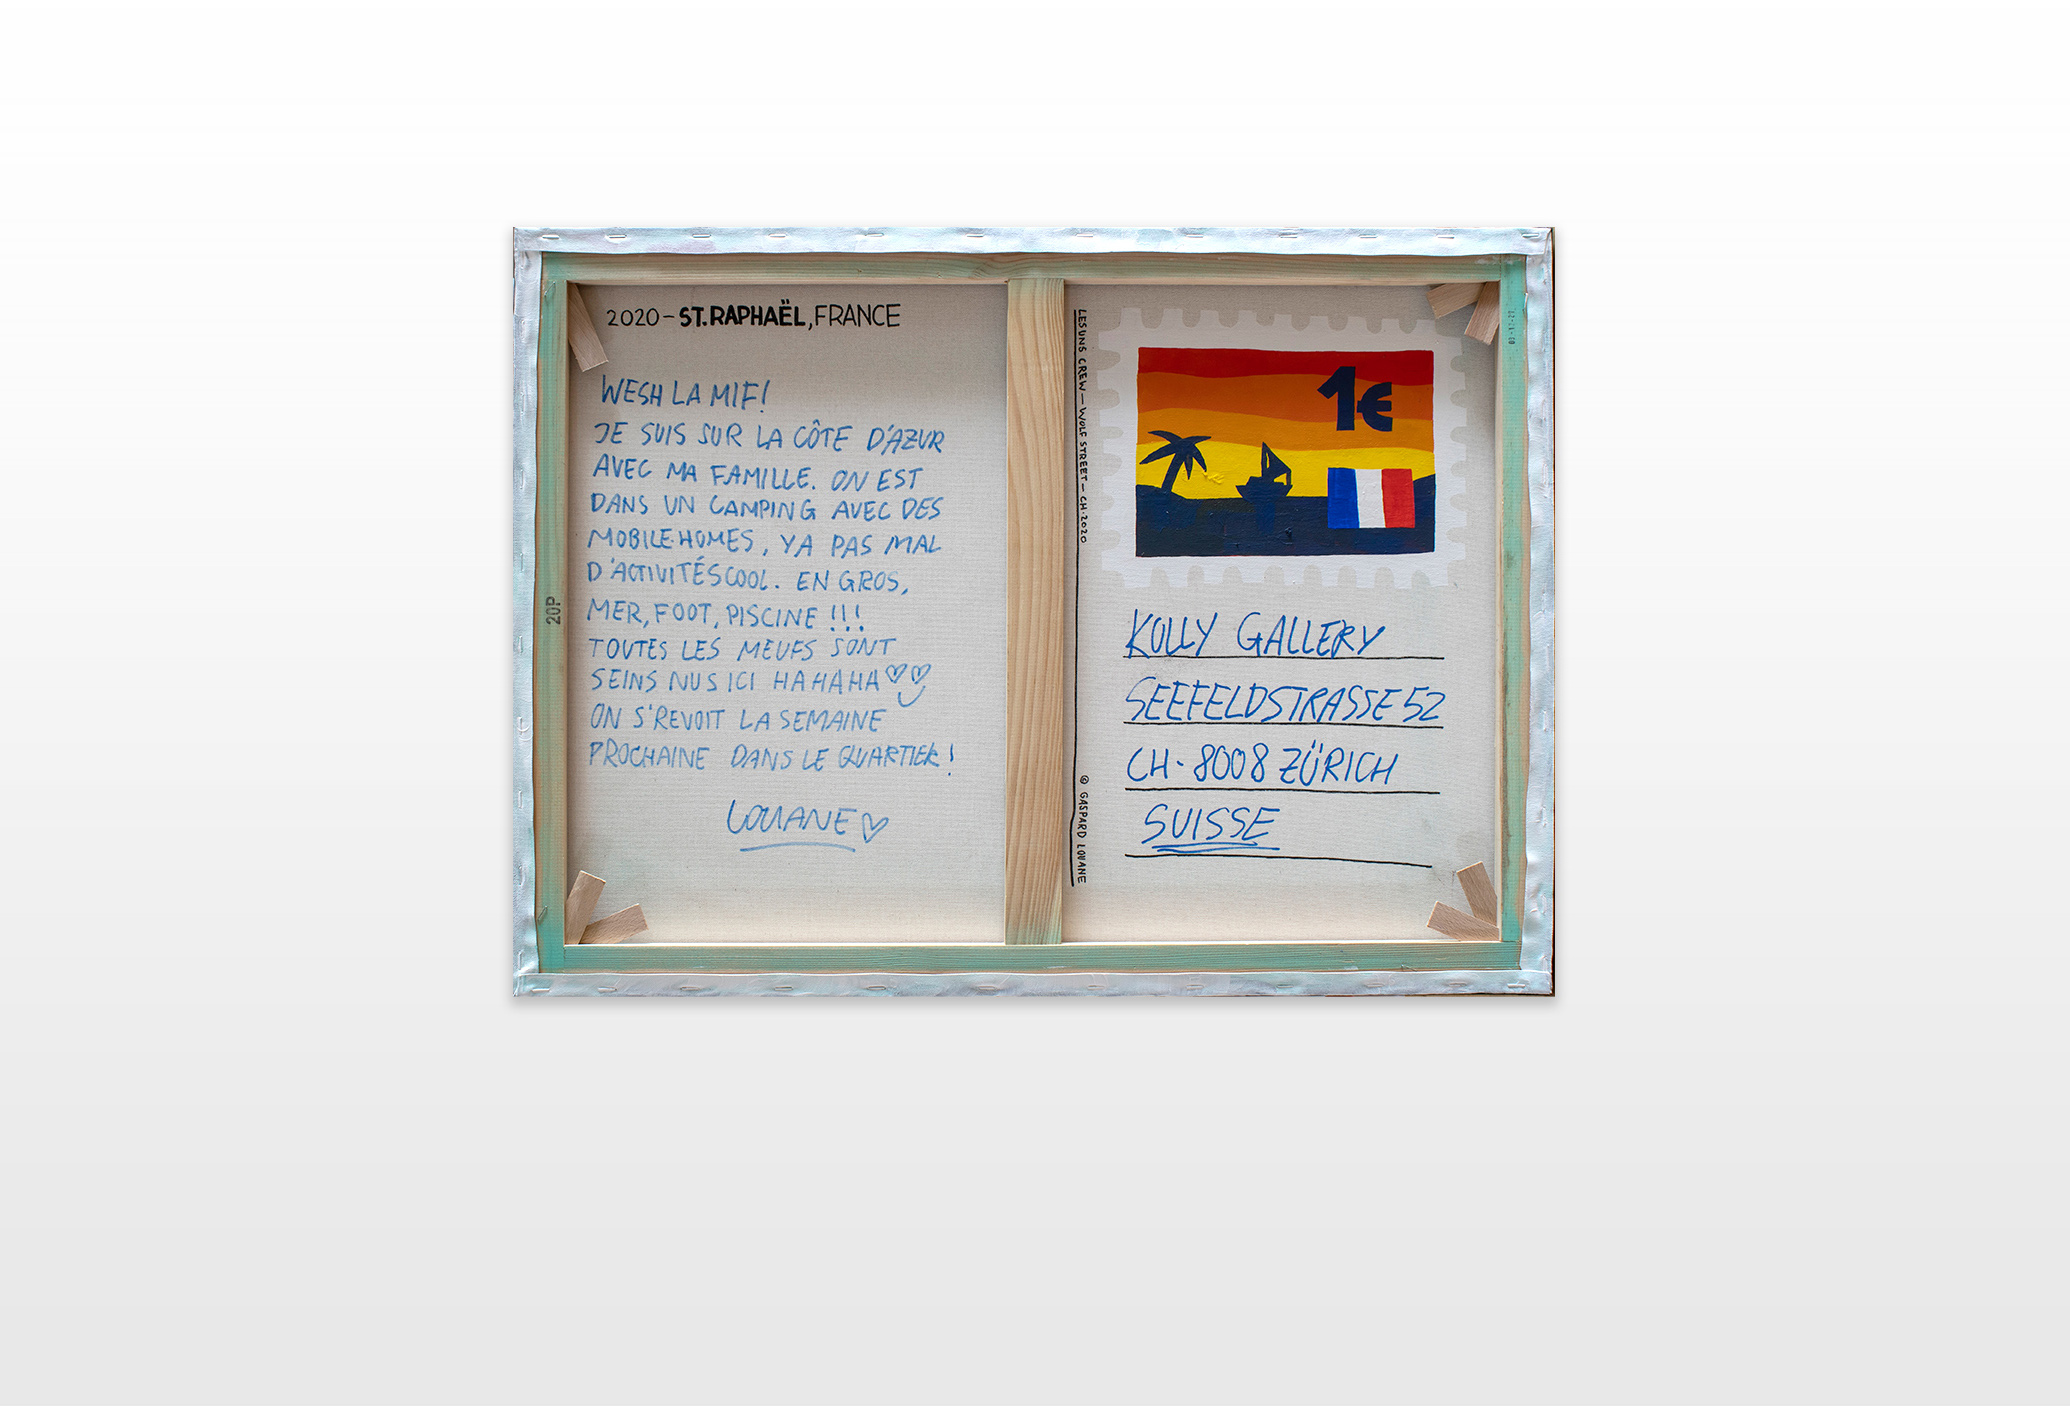 2020 – ST. RAPHAËL, FRANCE
WESH LA MIF!
JE SUIS SUR LA CÔTE D'AZUR
AVEC MA FAMILLE. ON EST
DANS UN CAMPING AVEC DES
MOBILE-HOMES, YA PAS MAL
D'ACTIVITÉS COOL. EN GROS,
MER, FOOT, PISCINE !!!
TOUTES LES MEUFS SONT
SEINS NUS ICI HAHAHA
ON S'REVOIT LA SEMAINE
PROCHAINE DANS LE QUARTIER!
LOUANE
20P
LESUNS CREW — WOLF STREET — CH·2020
© GASPARD LOUANE
1€
KOLLY GALLERY
SEEFELDSTRASSE 52
CH-8008 ZÜRICH
SUISSE